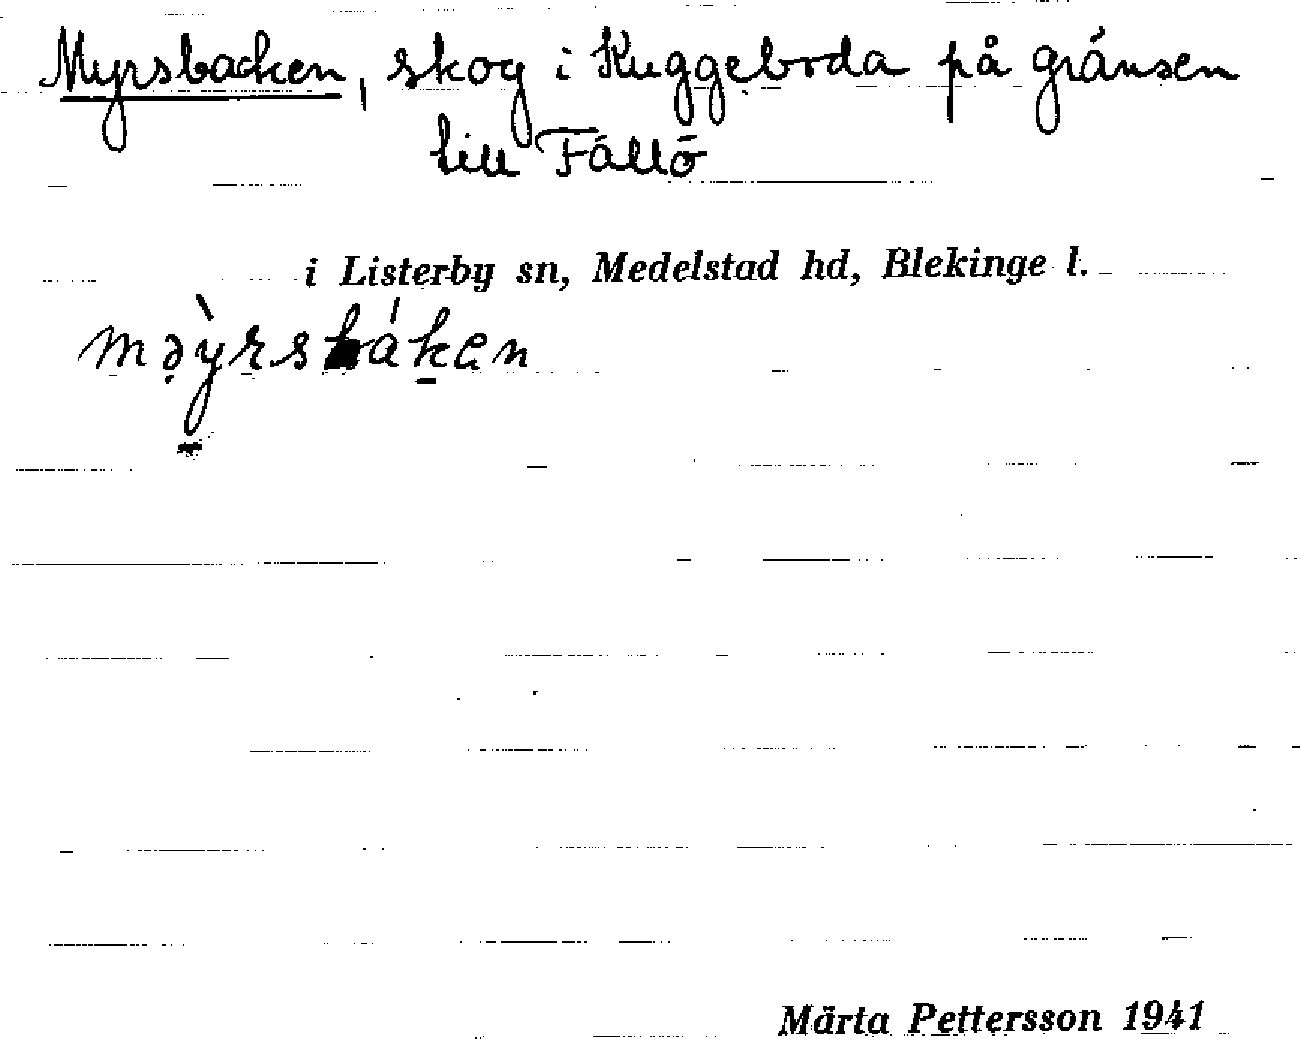 Myrsbacken, skog i Kuggeboda på gränsen
till Fällö
i Listerby sn, Medelstad hd, Blekinge l.
Märta Pettersson 1941